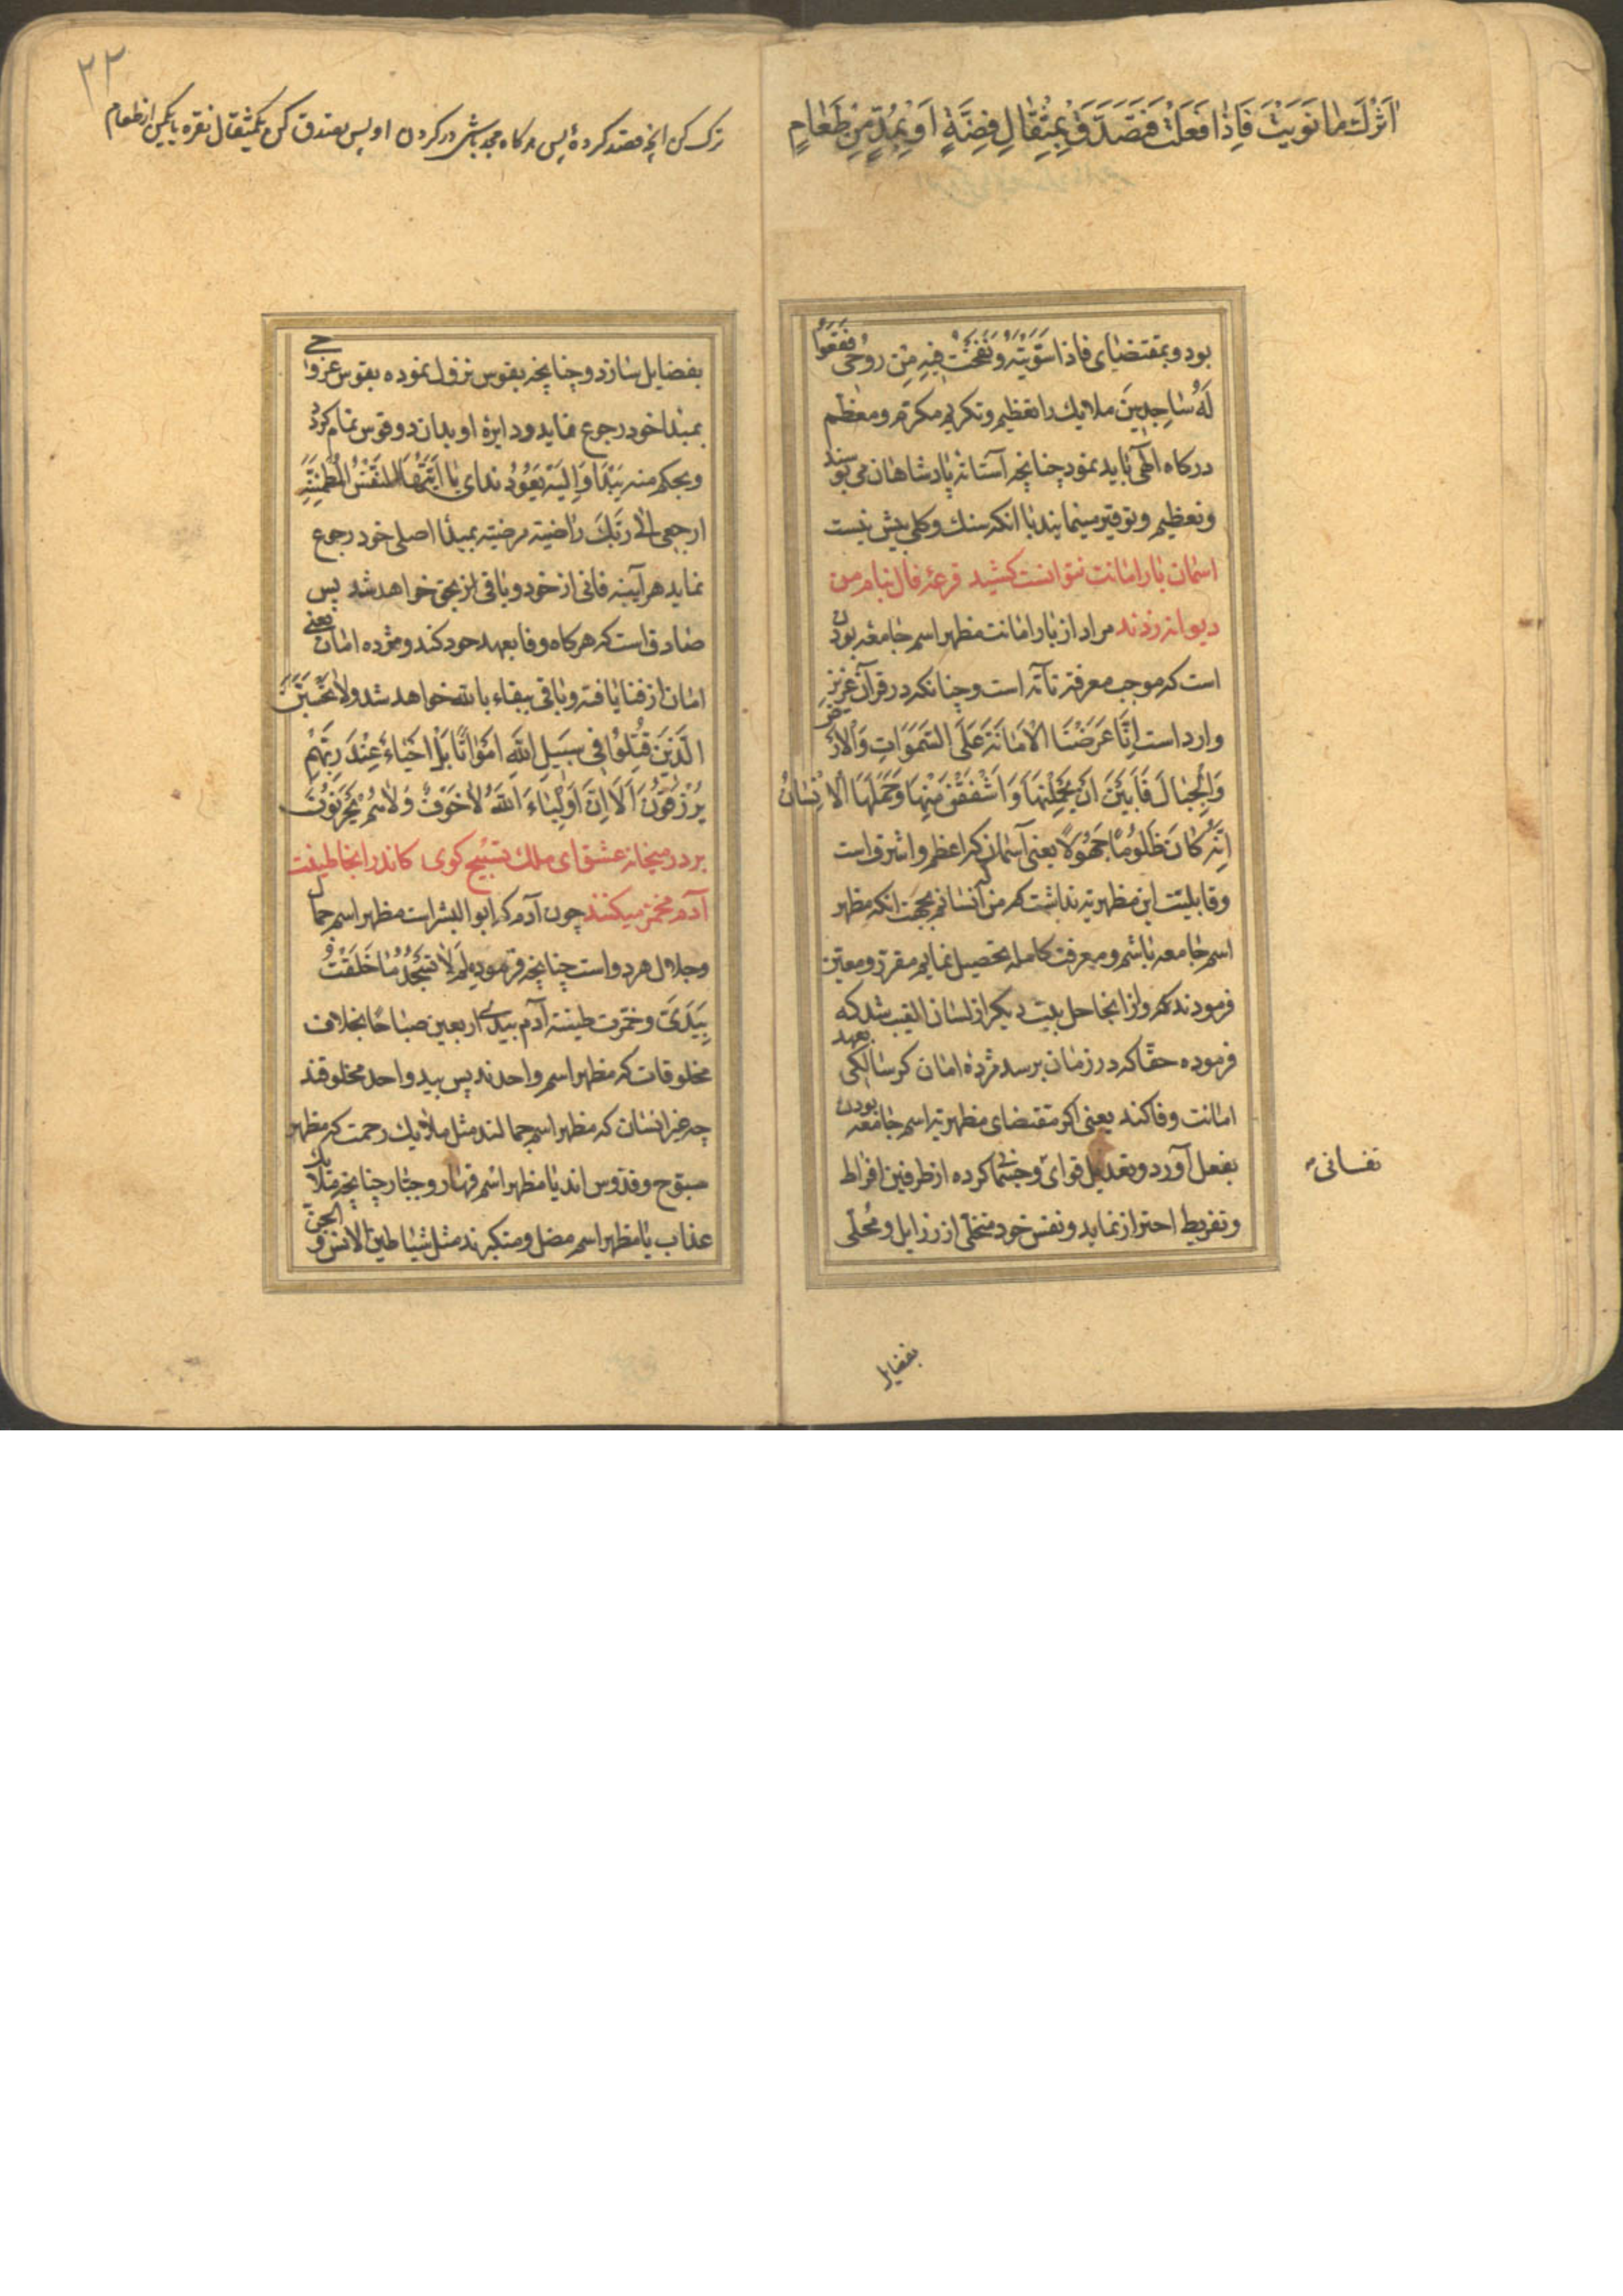 اُتْرُكْ مٰا نَوَيْتَ فَاِذٰا فَعَلْتَ فَتَصَدَّقْ بِمِثْقٰالِ فِضَّةٍ اَوْ بِمُدٍّ مِنْ طَعٰامٍ
بود و بمقتضای فاذا سَوَّيْتُهُ وَنَفَخْتُ فيهِ مِنْ رُوحی فَقَعُوا
لَهُ سٰاجِدينَ ملایک را تعظیم و تکریم مکرّم و معظّم
درکاه الهی باید نمود چنانچه آستانهٔ پادشاهان می بوسند
و تعظیم و توقیر مینمایند با انکه سنک و کلی بیش نیست
اسمان بار امانت نتوانست کشید قرعهٔ فال بنام من
دیوانه زدند مراد از بار امانت مظهر اسم جامعه بودن
است که موجب معرفة تآمّه است و چنانکه در قرآن عزیز
وارد است اِنّٰا عَرَضْنَا الْاَمٰانَةَ عَلَی السَّمٰوَاتِ وَالْاَرْضِ
وَالْجِبٰالِ فَاَبَيْنَ اَنْ يَحْمِلْنَهٰا وَاَشْفَقْنَ مِنْهٰا وَحَمَلَهَا الْاِنْسٰانُ
اِنَّهُ كٰانَ ظَلُومًا جَهُولًا یعنی آسمان که اعظم و اشرف است
و قابلیّت این مظهریّه نداشت که من انسانم بجهت انکه مظهر
اسم جامعه باشم و معرفت کامله تحصیل نمایم مقرّر و معیّن
فرمودند که و از اینجا حل بیت دیکر از لسان الغیب شد که
فرموده حقّا که در زمان برسد مژدهٔ امان کر سالکی بعهد
امانت وفا کند یعنی اکر مقتضای مظهریّه اسم جامعه بودن
بفعل آورد و تعدیل قوای و جسمانی کرده از طرفین افراط
نفسانی
و تفریط احتراز نماید و نفس خود متخلّی از رزایل و مُحلّی
بفضایل
۲۲
ترک کن انچه قصد کردهٔ پس هر کاه مجد باشی در کردن او پس تصدق کن بیکمثقال نقره یا بیکمن از طعام
بفضایل سازد و چنانچه بقوس نزول نموده بقوس عروجی
بمبدا خود رجوع نماید و دایرهٔ او بدان دو قوس تمام کردد
و بحکم منه یَبْدَا وَاِلَيْهِ يَعُودُ ندای یٰا اَيَّتُهَا النَّفْسُ الْمُطْمَئِنَّةُ
ارجعی الٰی رَبِّكِ راضیة مرضیّة بمبدا اصلی خود رجوع
نماید هر آینه فانی از خود و باقی بحق خواهد شد پس
صادق است که هر کاه وفا بعهد خود کند و مژده امان یعنی
امان از فنا یافته و باقی ببقاء بالله خواهد شد ولا تَحْسَبَنَّ
الَّذينَ قُتِلُوا فی سَبيلِ اللّٰهِ اَمْوٰاتًا بَلْ اَحْيٰاءٌ عِنْدَ رَبِّهِمْ
يُرْزَقُونَ اَلَا اِنَّ اَوْلِيٰاءَ اللّٰهِ لٰا خَوْفٌ وَلٰا هُمْ يَحْزَنُونَ
بر در میخانه عشق ای ملک تسبیح کوی کاندر انجا طینت
آدم مخمّر میکنند چون آدم که ابو البشر است مظهر اسم جمال
و جلال هر دو است چنانچه فرموده لِمَ لٰا تَسْجُدُ لِمٰا خَلَقْتُ
بِيَدَیَّ و خمّرت طینة آدم بیدی اربعین صباحًا بخلاف
مخلوقات که مظهر اسم واحدند پس بید واحد مخلوقند
چه غیر انسان که مظهر اسم جمالند مثل ملایک رحمت که مظهر
سبّوح و قدّوس اند یا مظهر اسم قهّار و جبّار چنانچه ملایک
عذاب یا مظهر اسم مضل و متکبّرند مثل شیاطین الانس و الجن